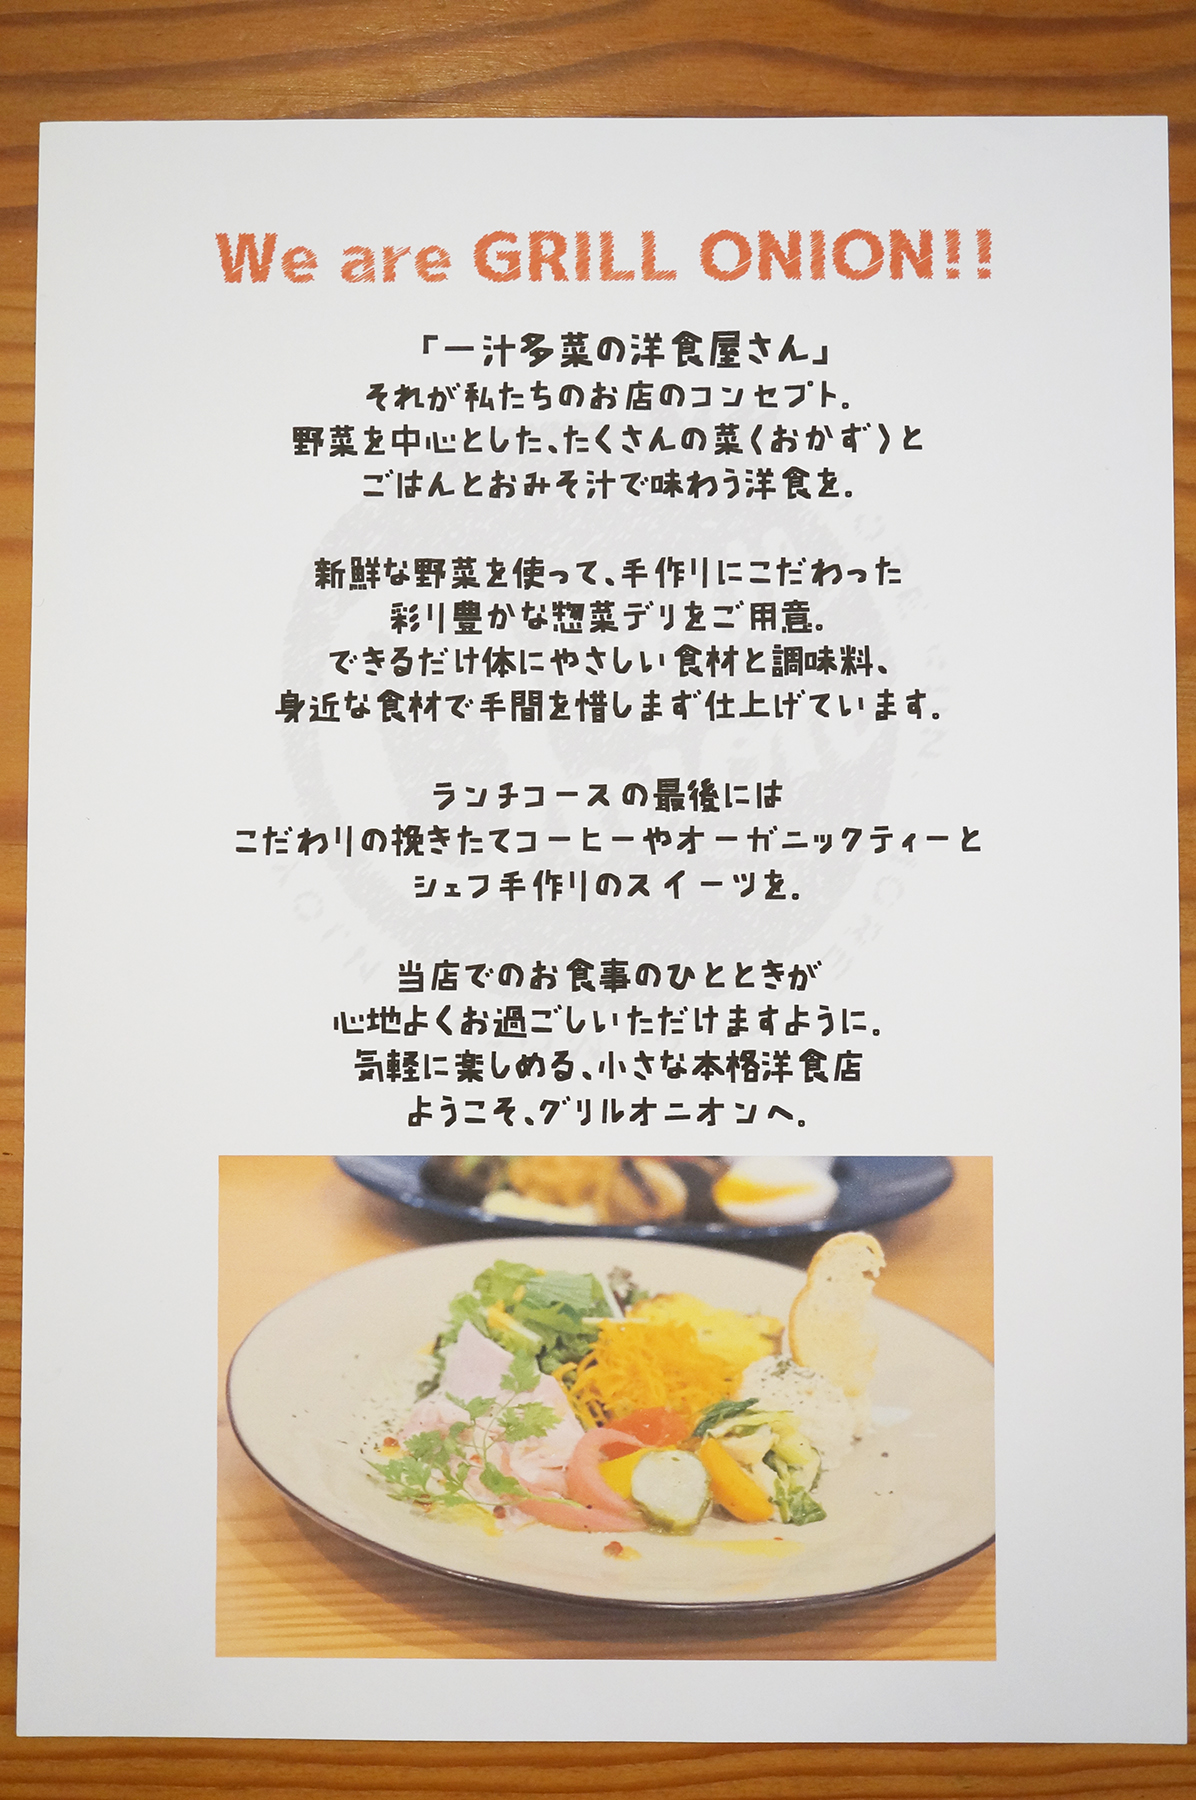 We are GRILL ONION!!
「一汁多菜の洋食屋さん」
それが私たちのお店のコンセプト。
野菜を中心とした、たくさんの菜〈おかず〉と
ごはんとおみそ汁で味わう洋食を。
新鮮な野菜を使って、手作りにこだわった
彩り豊かな惣菜デリをご用意。
できるだけ体にやさしい食材と調味料、
身近な食材で手間を惜しまず仕上げています。
ランチコースの最後には
こだわりの挽きたてコーヒーやオーガニックティーと
シェフ手作りのスイーツを。
当店でのお食事のひとときが
心地よくお過ごしいただけますように。
気軽に楽しめる、小さな本格洋食店
ようこそ、グリルオニオンへ。